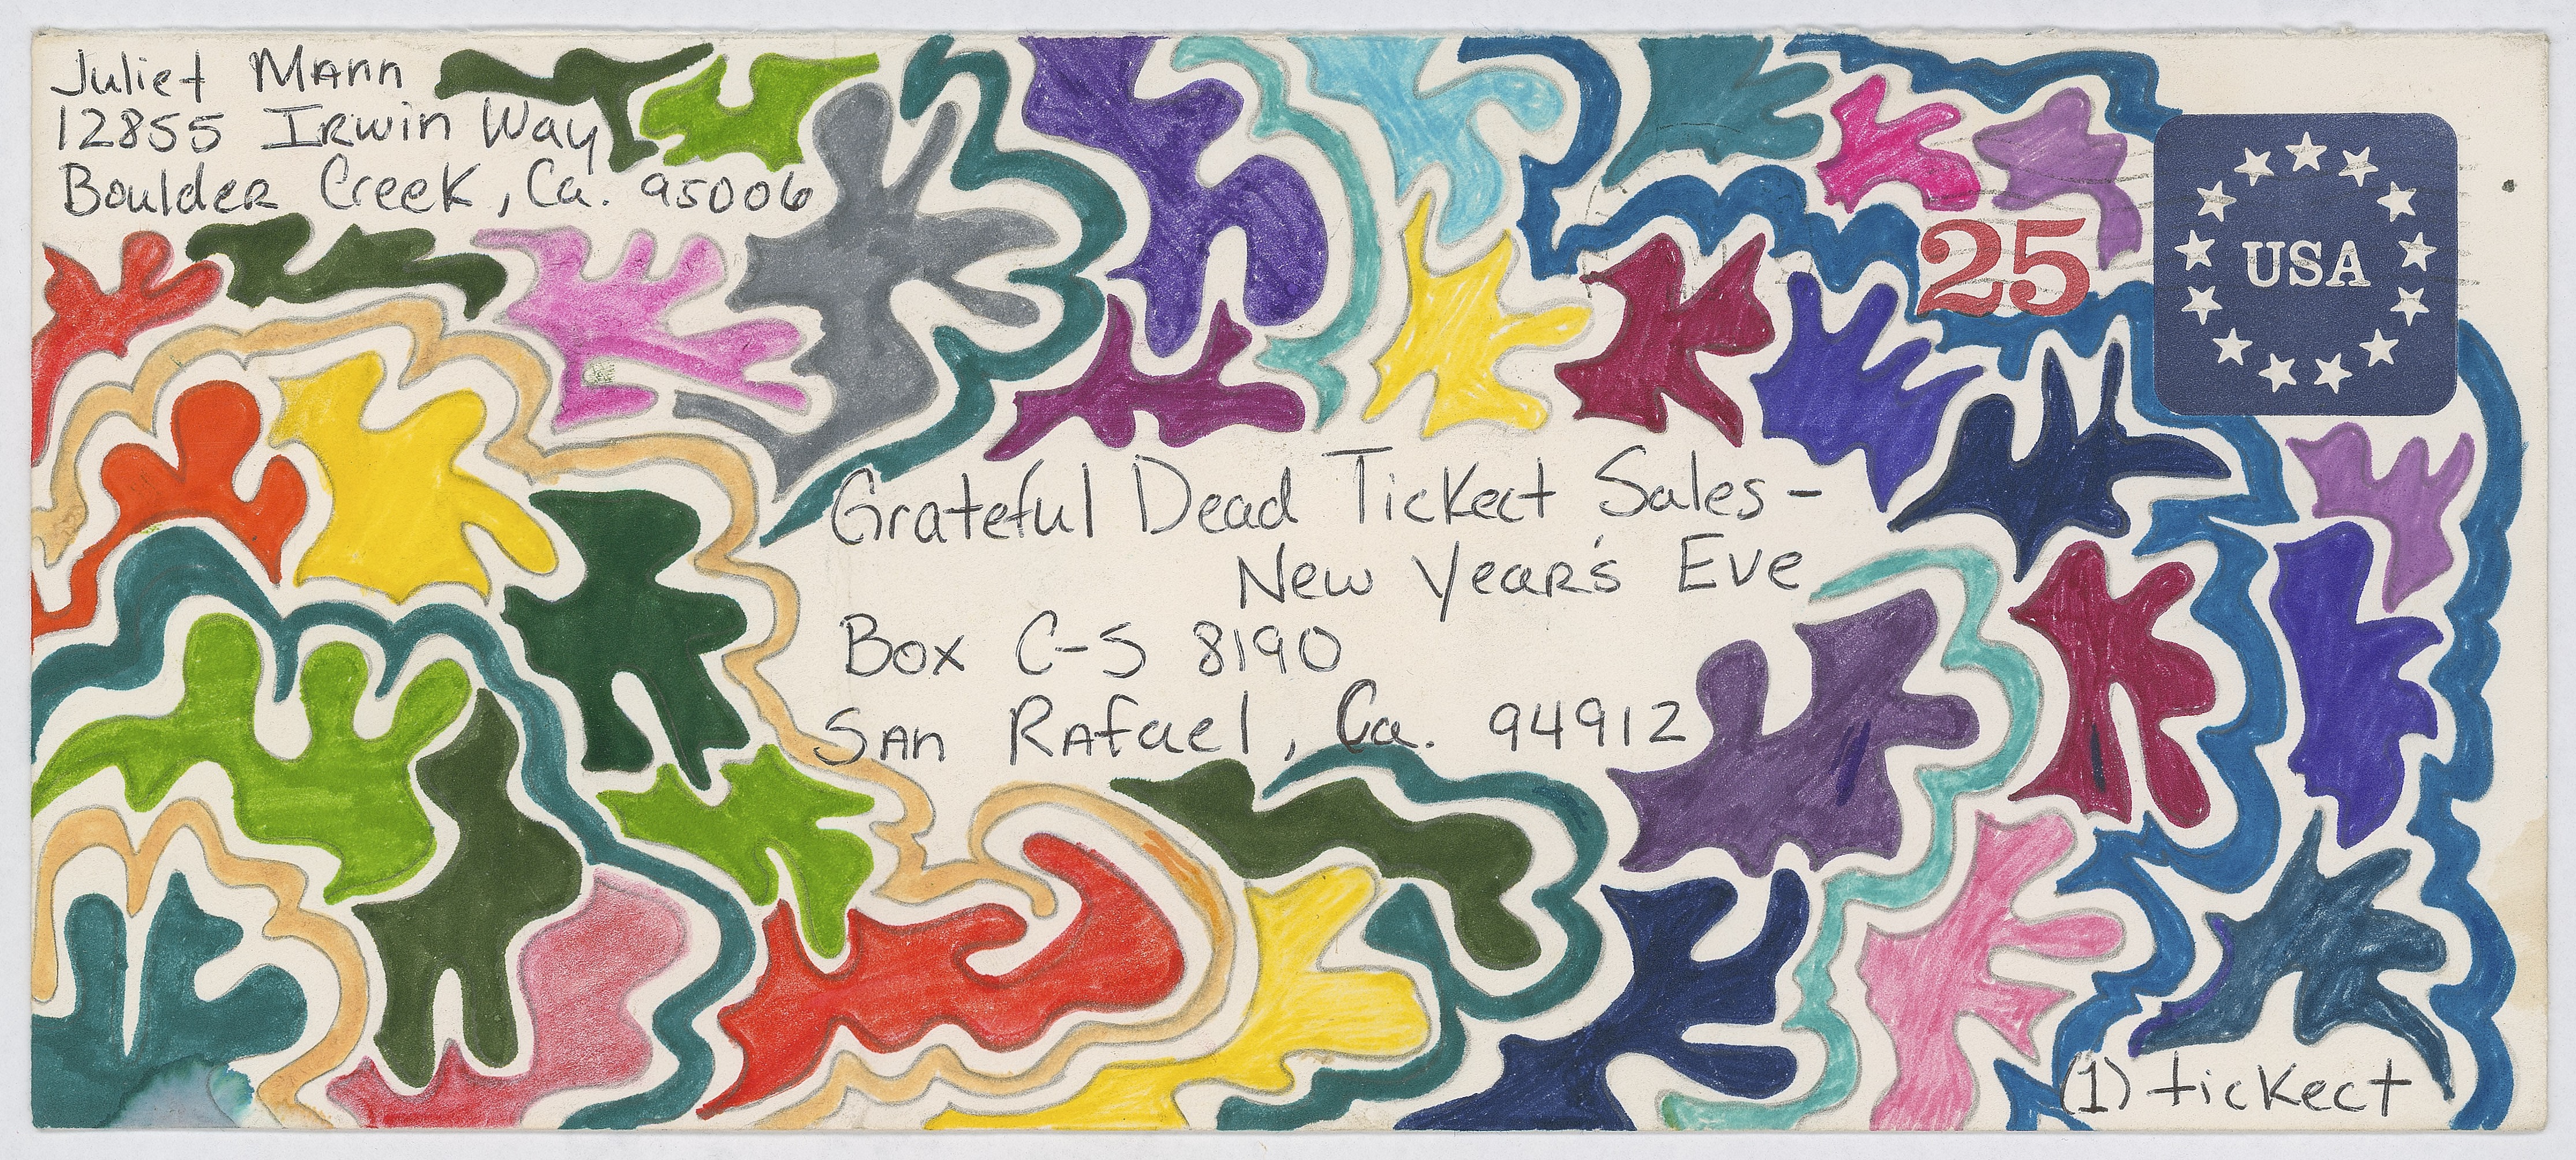 Juliet Mann
12855 Irwin Way
Boulder Creek, Ca. 95006
25
USA
Grateful Dead Tickect Sales-
New Year's Eve
Box C-S 8190
San Rafael, Ca. 94912
(1) tickect